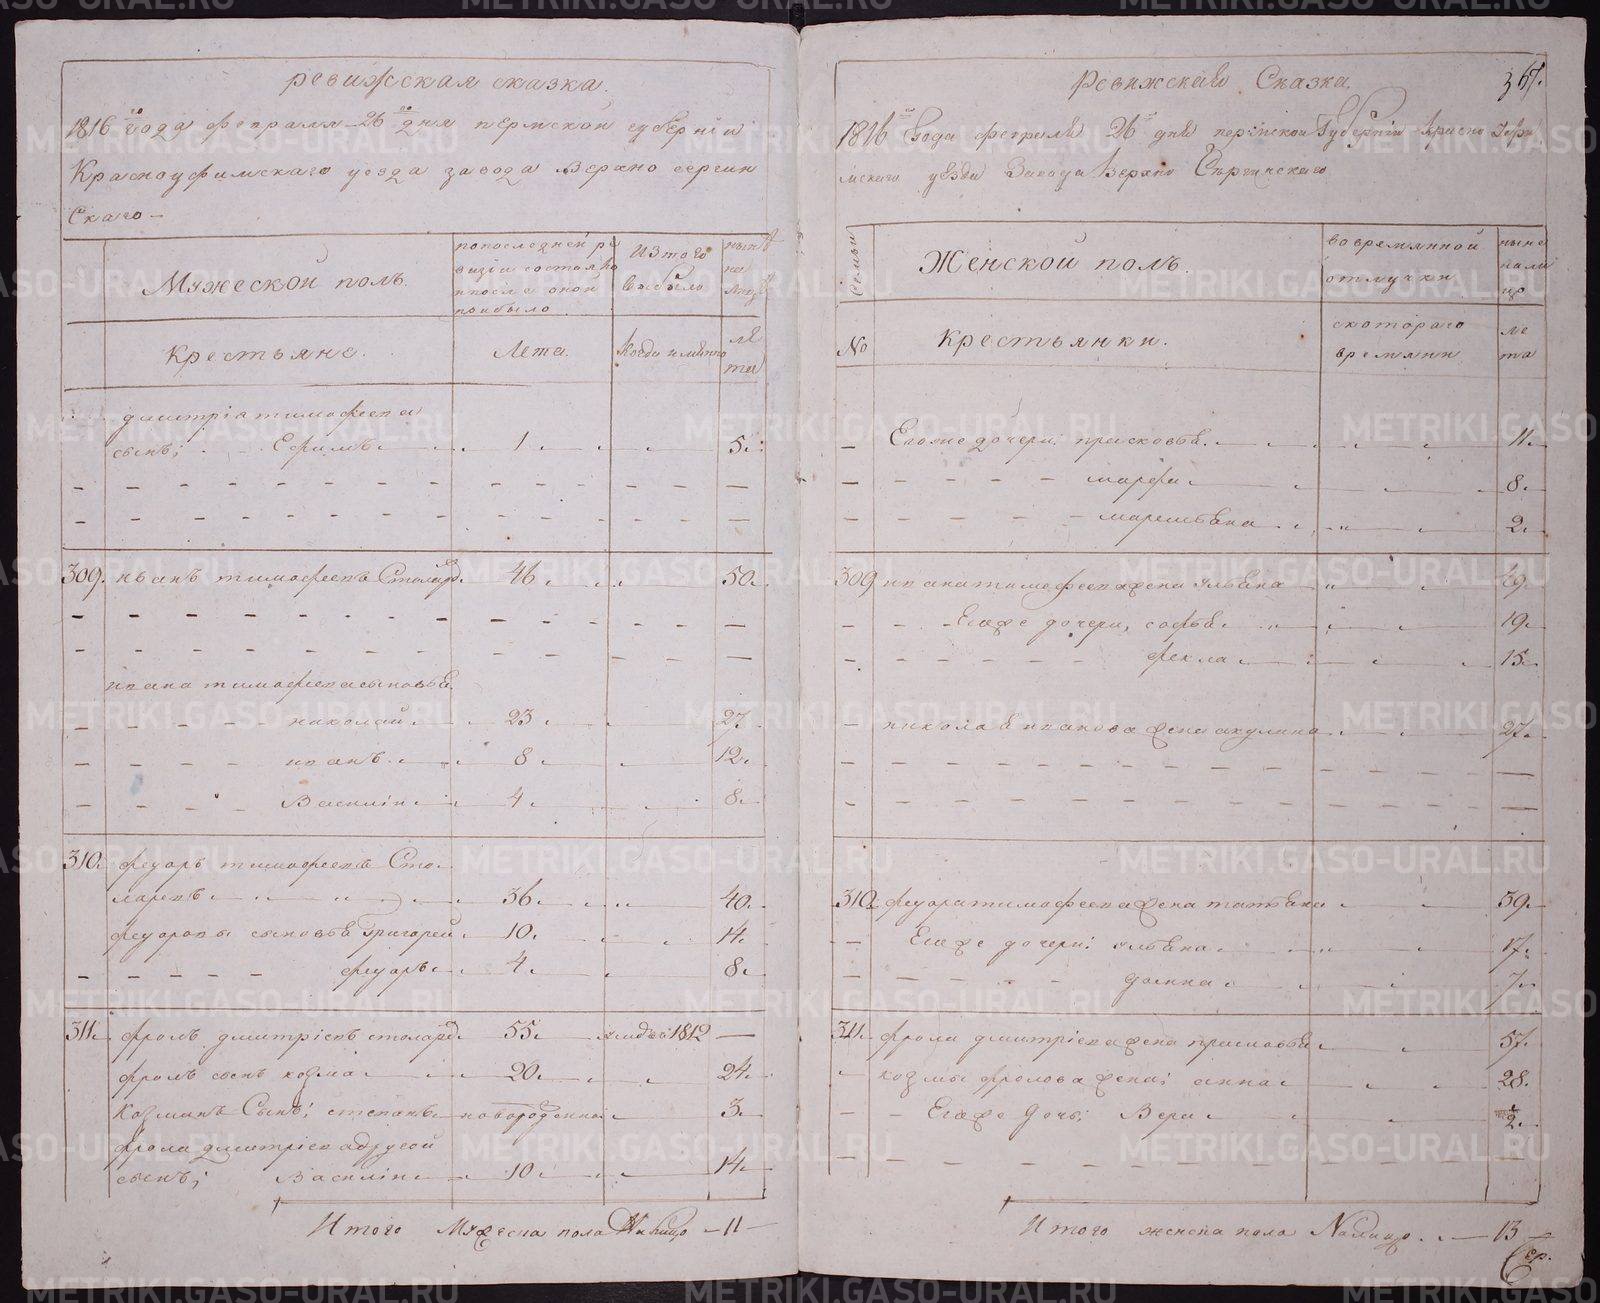 ревижская сказка.
1816 года февраля 26 дня пермской губернии
Красноуфимскаго уезда завода Верхно сергин
Скаго —
Мужеской полъ.
по последней ре
визіи состояло
и после оной
прибыло
Из того
выбыло
ныне
на
лицо
Крестьяне.
Лета.
Когда имянно
ле
та
дмитрія тимофеева
сынъ; Ефимъ 1 5
309. иванъ тимофеевъ Столяровъ 46 50.
ивана тимофеева сыновья
николай 23 27.
иванъ 8 12.
Василіи 4 8.
310. федоръ тимофеевъ Сто
ляревъ 36 40.
федоровы сыновья Григорей 10. 14.
федоръ 4 8.
311. фролъ дмитріевъ столяровъ 55. умре 1812 —
фролъ сынъ козма 20. 24.
Козминъ Сынъ; степанъ новорожденной 3.
фрола дмитріева другой
сынъ; Василіи 10 14.
Итого Мужеска пола Налицо — 11 —
Ревижская Сказка. 367.
1816 Года февраля 26 дня пермской Губерніи Красно Уфи
мскаго уезда Завода Верхно Сергинскаго
Семьи
Женской полъ.
во времянной
отлучки
ныне
нали
цо
No
Крестьянки.
скотораго
времяни
ле
та
Егоже дочери; прасковья 11.
марфа 8.
маремьяна 2.
309 ивана тимофеева жена ульяна 49.
Егоже дочери, софья 19.
фекла 15.
николая иванова жена акулина 27.
310. федора тимофеева жена татьяна 39.
Егоже дочери; ульяна 17.
домна 7.
311. фрола дмитріева жена прасковья 57.
козмы фролова жена; анна 28.
Егоже Дочь; Вера 1/2.
Итого женска пола Налицо. — 13
METRIKI.GASO-URAL.RU